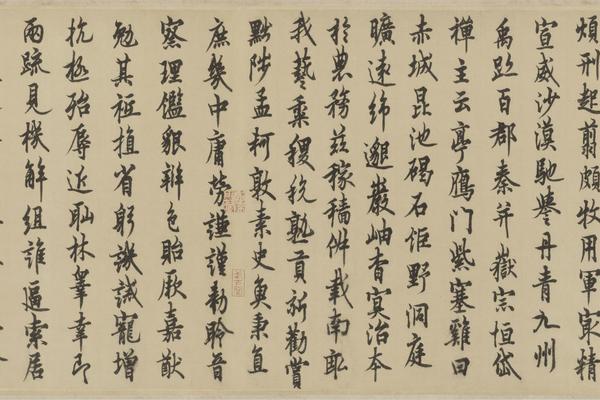 煩刑起翦頗牧用軍冣精
宣威沙漠馳譽丹青九州
禹跡百郡秦并嶽宗恒岱
禪主云亭鴈門紫塞雞田
赤城昆池碣石鉅野洞庭
曠遠綿邈巖岫杳冥治本
於農務茲稼穡俶載南畝
我藝黍稷稅熟貢新勸賞
黜陟孟軻敦素史魚秉直
庶幾中庸勞謙謹勑聆音
察理鑑貌辨色貽厥嘉猷
勉其祗植省躬譏誡寵增
抗極殆辱近恥林睾幸即
兩疏見機解組誰逼索居